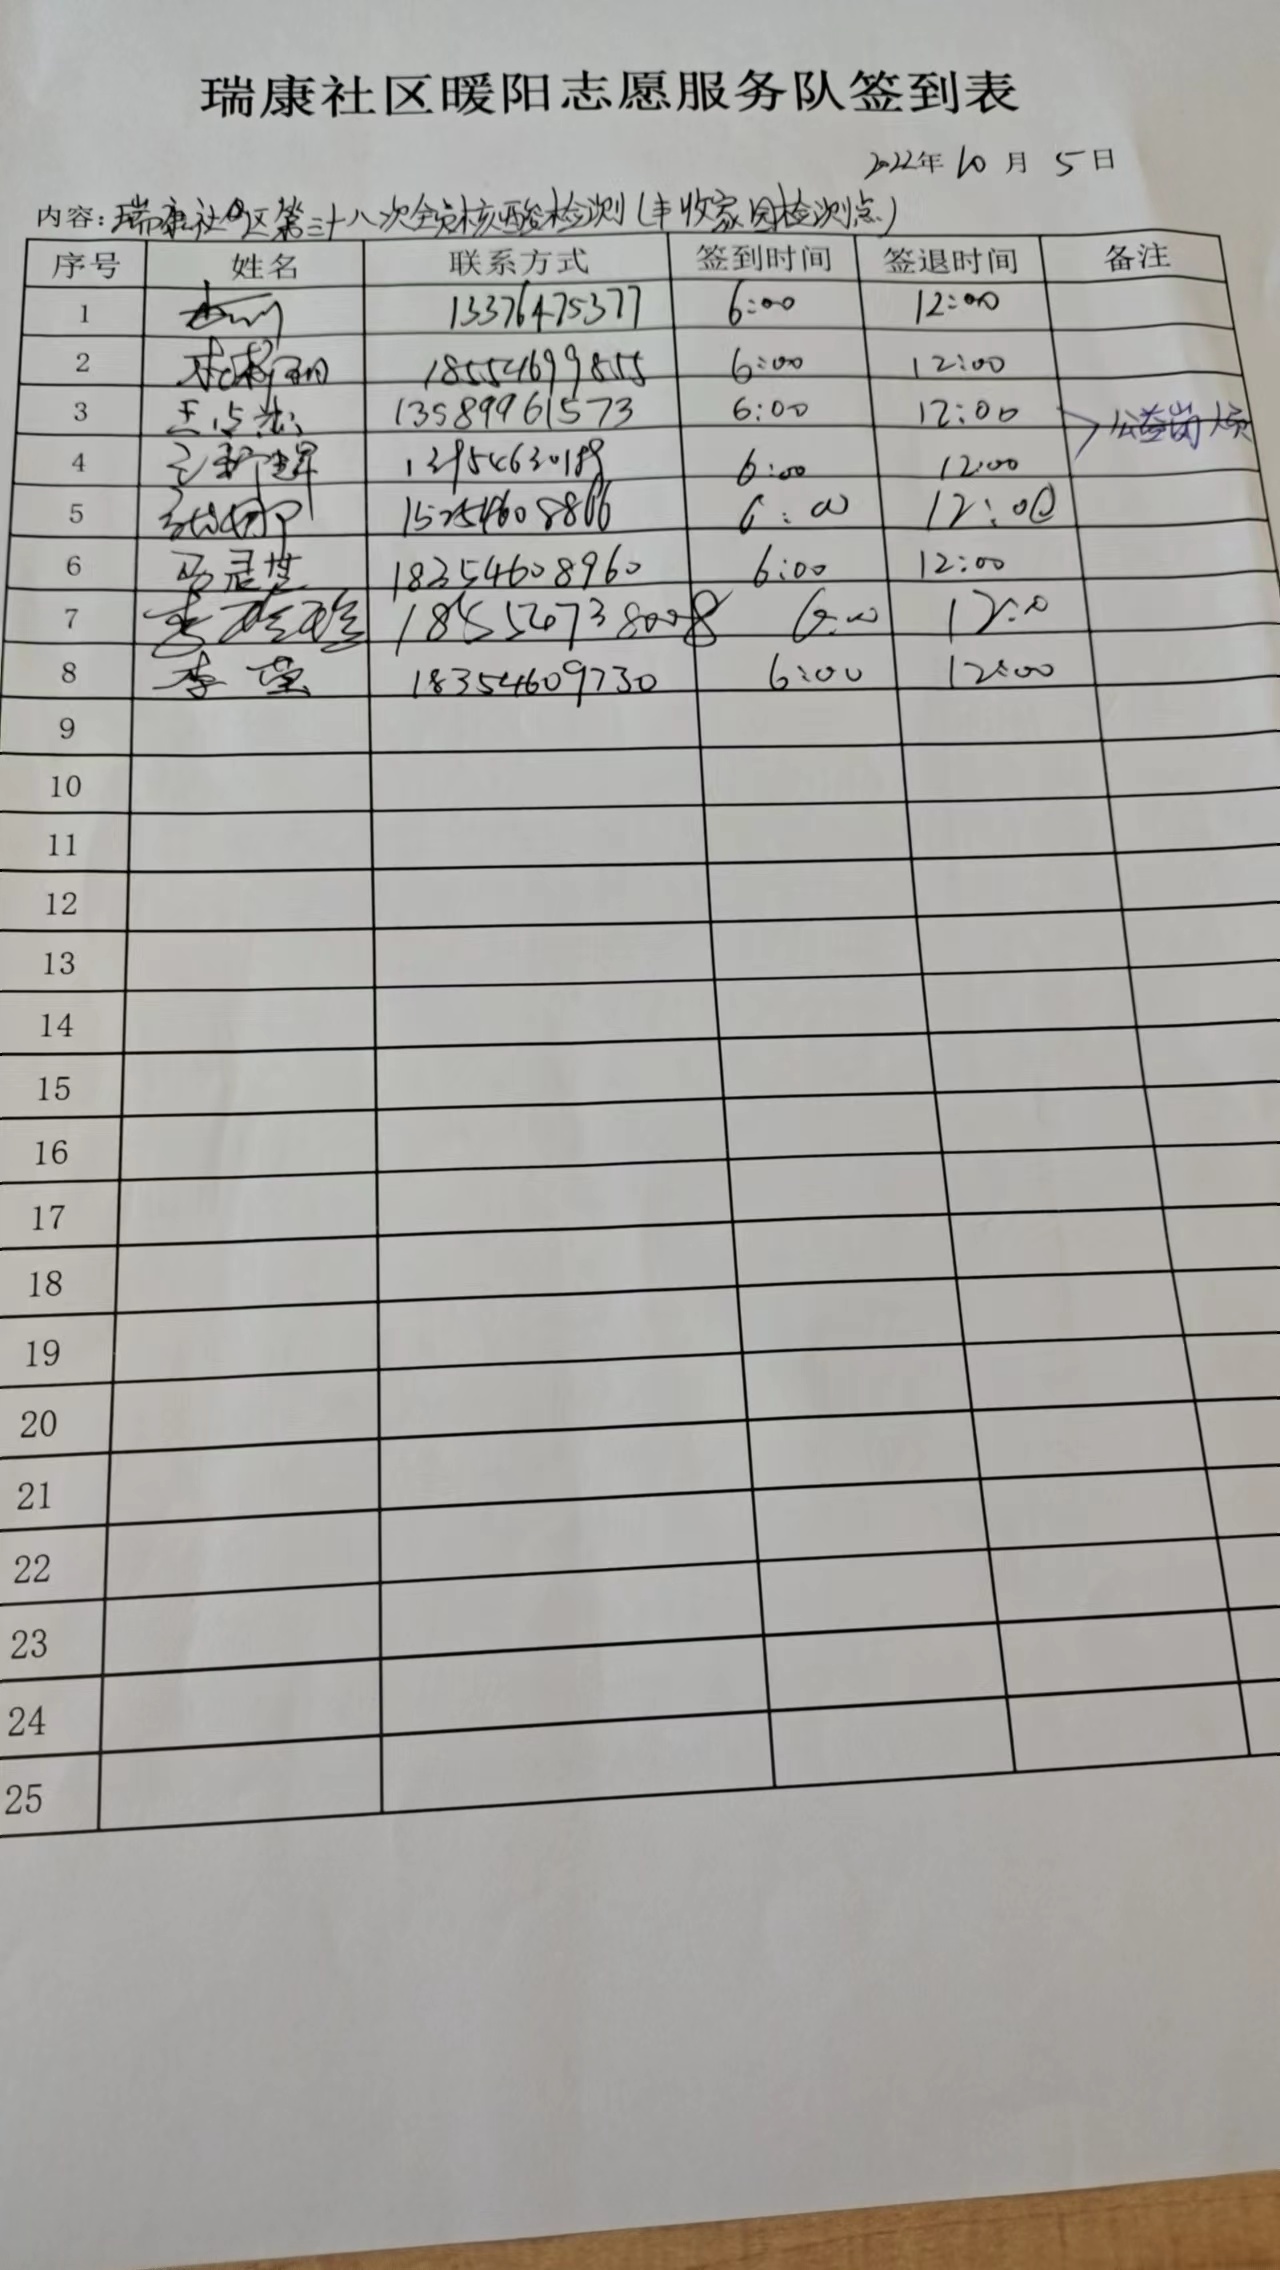 瑞康社区暖阳志愿服务队签到表
2022年10月5日
内容:瑞康社区第三十八次全员核酸检测(丰收家园检测点)
序号 姓名 联系方式 签到时间 签退时间 备注
1 13376475377 6:00 12:00
2 18554699855 6:00 12:00
3 13589961573 6:00 12:00 公益岗人员
4 6:00 12:00
5 6:00 12:00
6 马灵芝 18254608960 6:00 12:00
7 6:00 12:00
8 李莹 18354609730 6:00 12:00
9
10
11
12
13
14
15
16
17
18
19
20
21
22
23
24
25